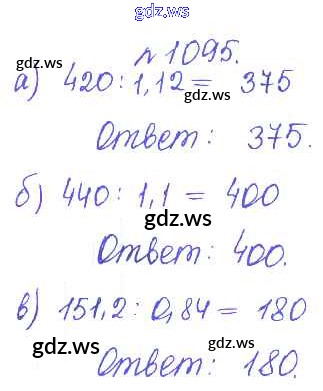 gdz.ws
№ 1095.
gdz.ws
а) 420 : 1,12 = 375
gdz.ws
Ответ: 375.
б) 440 : 1,1 = 400
gdz.ws
Ответ: 400.
gdz.ws
в) 151,2 : 0,84 = 180
gdz.ws
gdz.ws
Ответ: 180.